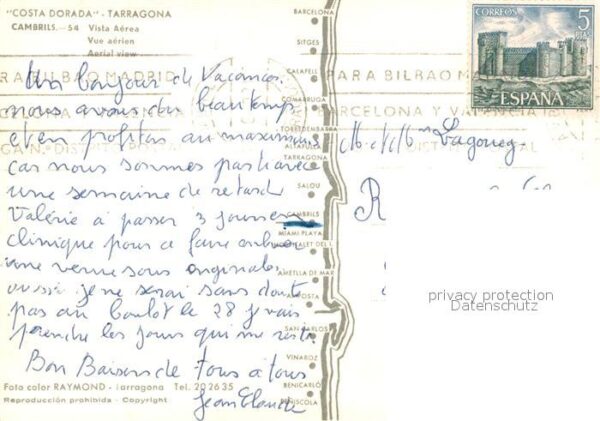 "COSTA DORADA" - TARRAGONA
CAMBRILS.-54 Vista Aérea
Vue aérien
Aerial view
Un bonjour de Vacances
nous avons du beau temps
et en profitons au maximum
car nous sommes parti avec
une semaine de retard
Valérie à passer 3 jours en
clinique pour ce faire enlever
une verrue sous
aussi je ne serai sans dout
pas au boulot le 28 je vais
prendre les jours qui me reste
Bon Baisers de tous à tous
Jean Claude
Foto color RAYMOND - Tarragona Tel. 202635
Reproducción prohibida - Copyright
BARCELONA
SITGES
CALAFELL
COMARRUGA
TORREDENBARRA
ALTAFULLA
TARRAGONA
SALOU
CAMBRILS
MIAMI PLAYA
HOSPITALET DEL I.
AMETLLA DE MAR
SAN CARLOS
VINAROZ
BENICARLÓ
PEÑISCOLA
CORREOS
5
PTAS
ESPAÑA
PARA BILBAO MADRID
PARA BILBAO
BARCELONA Y VALENCIA
M. et Mme
privacy protection
Datenschutz